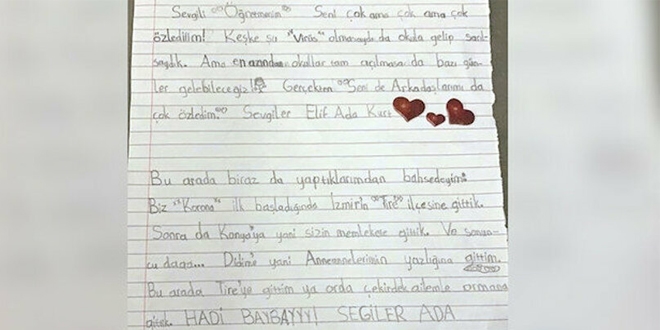 Sevgili "Öğretmenim" Seni çok ama çok ama çok
özledim! Keşke şu "Virüs" olmasaydı da okula gelip sarıl-
saydık. Ama en azından okullar tam açılmasa da bazı gün-
ler gelebileceğiz! Gerçekten Seni de Arkadaşlarımı da
çok özledim. Sevgiler Elif Ada Kurt
Bu arada biraz da yaptıklarımdan bahsedeyim.
Biz "Korona" ilk başladığında İzmir'in "Tire" ilçesine gittik.
Sonra da Konya'ya yani sizin memlekete gittik. Ve sonun-
cu daga... Didim'e yani Annemnelerimin yazlığına gittim.
Bu arada Tire'ye gittim ya orda çekirdek ailemle ormana
gitek. HADİ BAYBAYYY! SEGİLER ADA